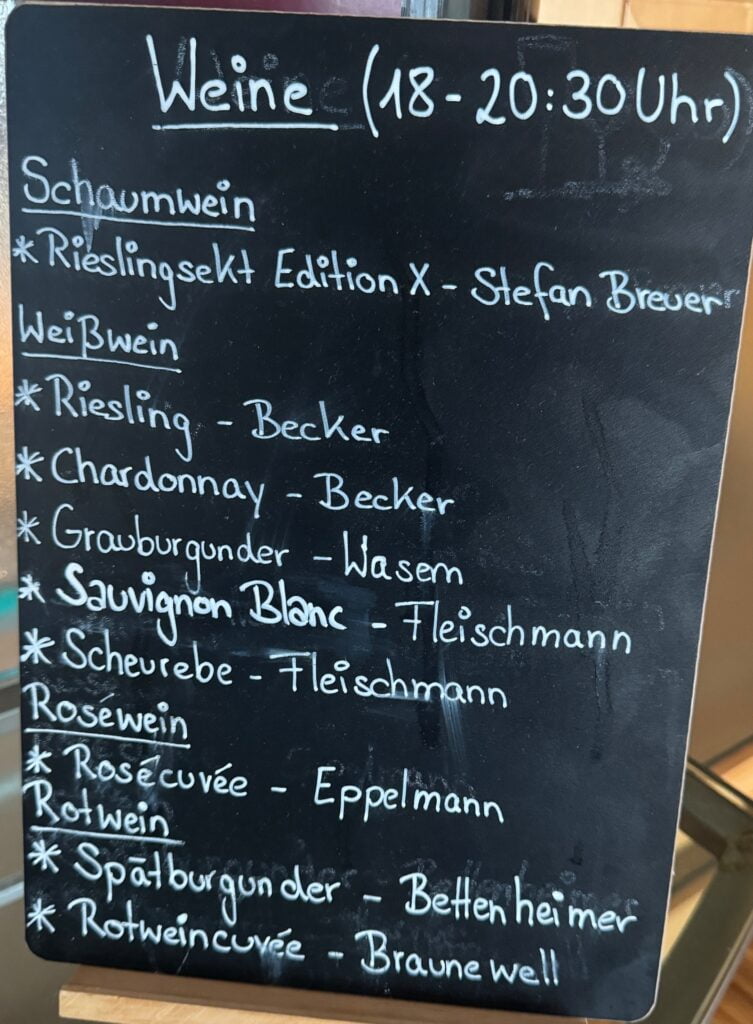 Weine (18-20:30 Uhr)
Schaumwein
* Rieslingsekt Edition X - Stefan Breuer
Weißwein
* Riesling - Becker
* Chardonnay - Becker
* Grauburgunder - Wasem
* Sauvignon Blanc - Fleischmann
* Scheurebe - Fleischmann
Roséwein
* Rosécuvée - Eppelmann
Rotwein
* Spätburgunder - Bettenheimer
* Rotweincuvée - Braunewell